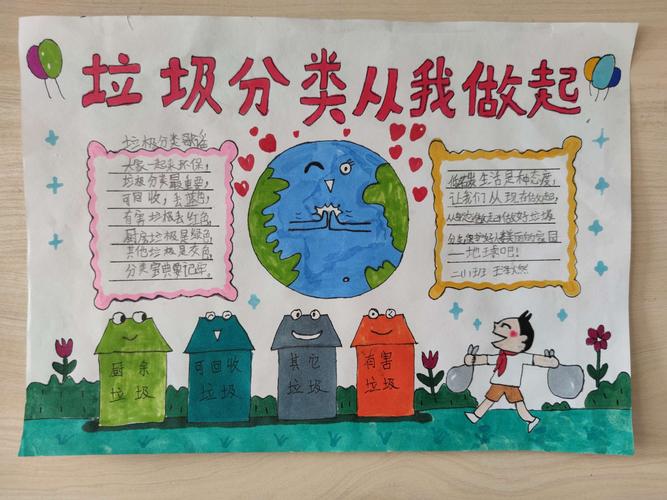 垃圾分类从我做起
垃圾分类歌谣
大家一起来环保,
垃圾分类最重要,
可回收,丢蓝色,
有害垃圾丢红色,
厨房垃圾是绿色,
其他垃圾是灰色,
分类宝典要记牢。
低碳生活是种态度,
让我们从现在做起,
从我做起做好垃圾
分类保护好人类的家园
—地球吧!
二(1)班
厨余
垃圾
可回收
垃圾
其它
垃圾
有害
垃圾